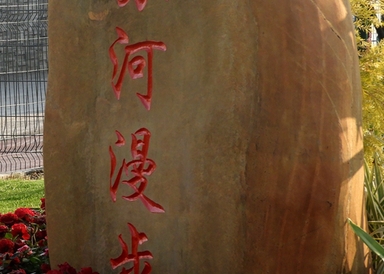 河漫步